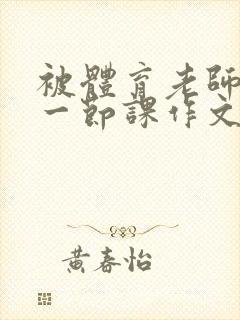 被體育老師
一節課作文
黃春怡